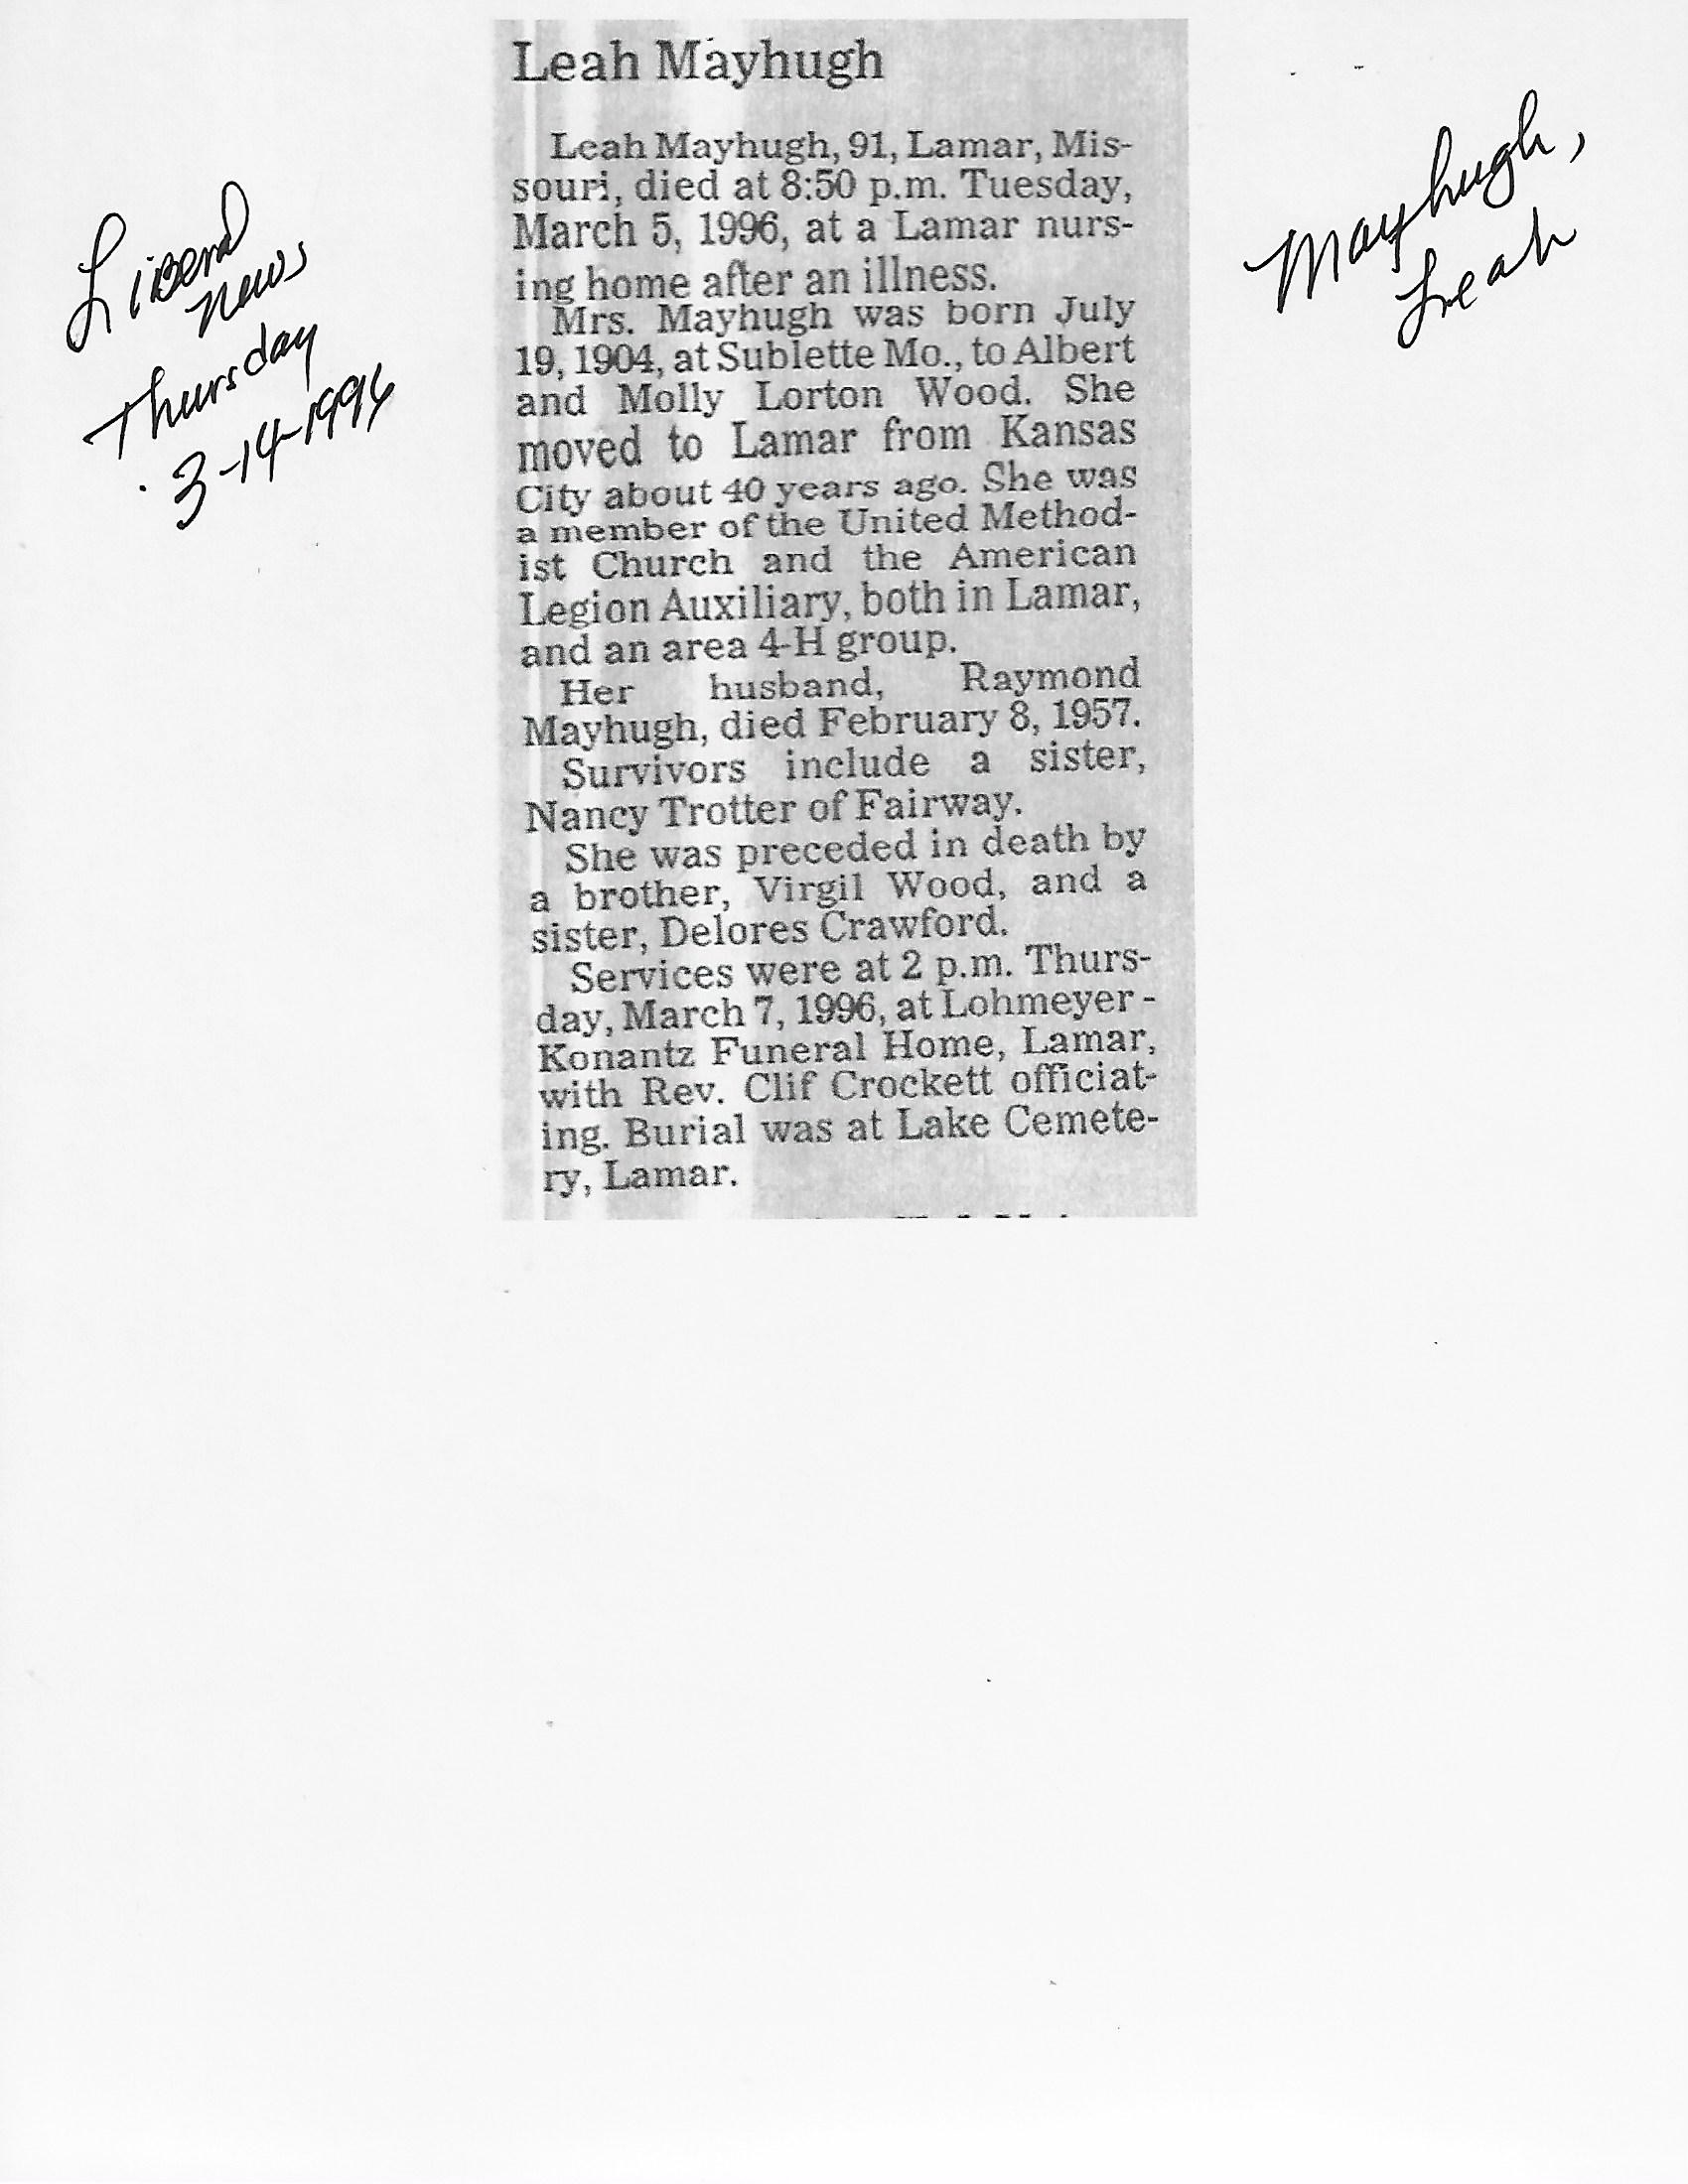 Leah Mayhugh
Leah Mayhugh, 91, Lamar, Mis-
souri, died at 8:50 p.m. Tuesday,
March 5, 1996, at a Lamar nurs-
ing home after an illness.
Mrs. Mayhugh was born July
19, 1904, at Sublette Mo., to Albert
and Molly Lorton Wood. She
moved to Lamar from Kansas
City about 40 years ago. She was
a member of the United Method-
ist Church and the American
Legion Auxiliary, both in Lamar,
and an area 4-H group.
Her husband, Raymond
Mayhugh, died February 8, 1957.
Survivors include a sister,
Nancy Trotter of Fairway.
She was preceded in death by
a brother, Virgil Wood, and a
sister, Delores Crawford.
Services were at 2 p.m. Thurs-
day, March 7, 1996, at Lohmeyer-
Konantz Funeral Home, Lamar,
with Rev. Clif Crockett officiat-
ing. Burial was at Lake Cemete-
ry, Lamar.
Liberal
News
Thursday
3-14-1996
Mayhugh,
Leah